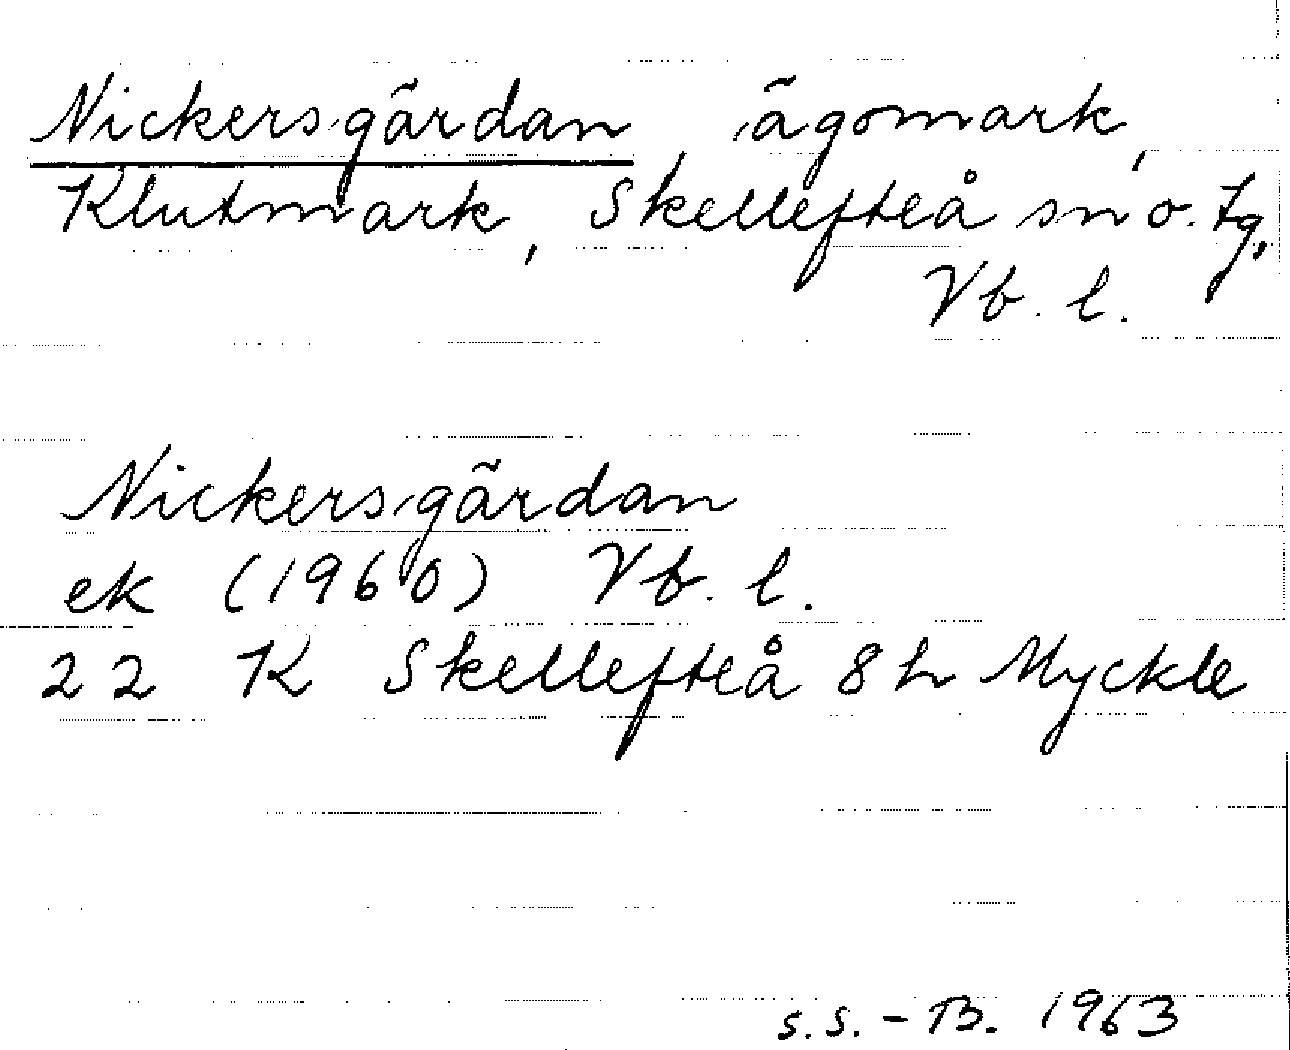 Nickersgärdan, ägomark,
Klutmark, Skellefteå sn o. tg,
Vb. l.
Nickersgärdan
ek (1960) Vb. l.
22 K Skellefteå 8h Myckle
S.S.-B. 1963